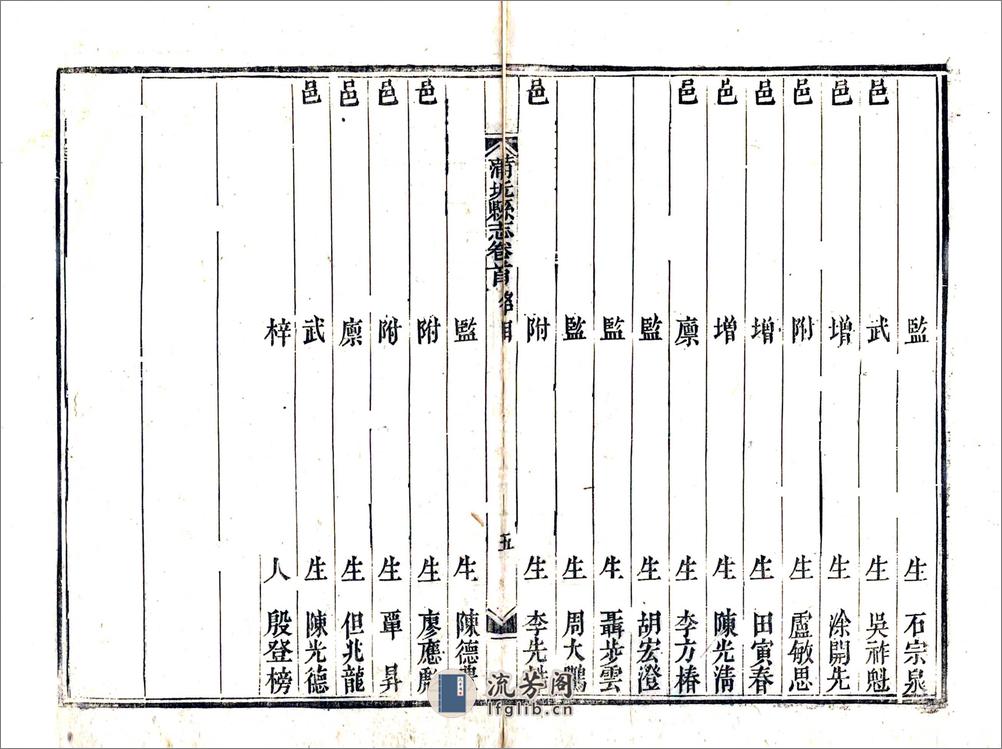 監生石宗泉
邑武生吳祚魁
邑增生涂開先
邑附生盧敏思
邑增生田寅春
邑增生陳光清
邑廩生李方椿
監生胡宏澄
監生聶步雲
監生周大鵬
邑附生李先
蒲圻縣志卷首 五
監生陳德
邑附生廖應彪
邑附生覃昇
邑廩生但兆龍
邑武生陳光德
梓人殷登榜
流芳阁
lfglib.cn